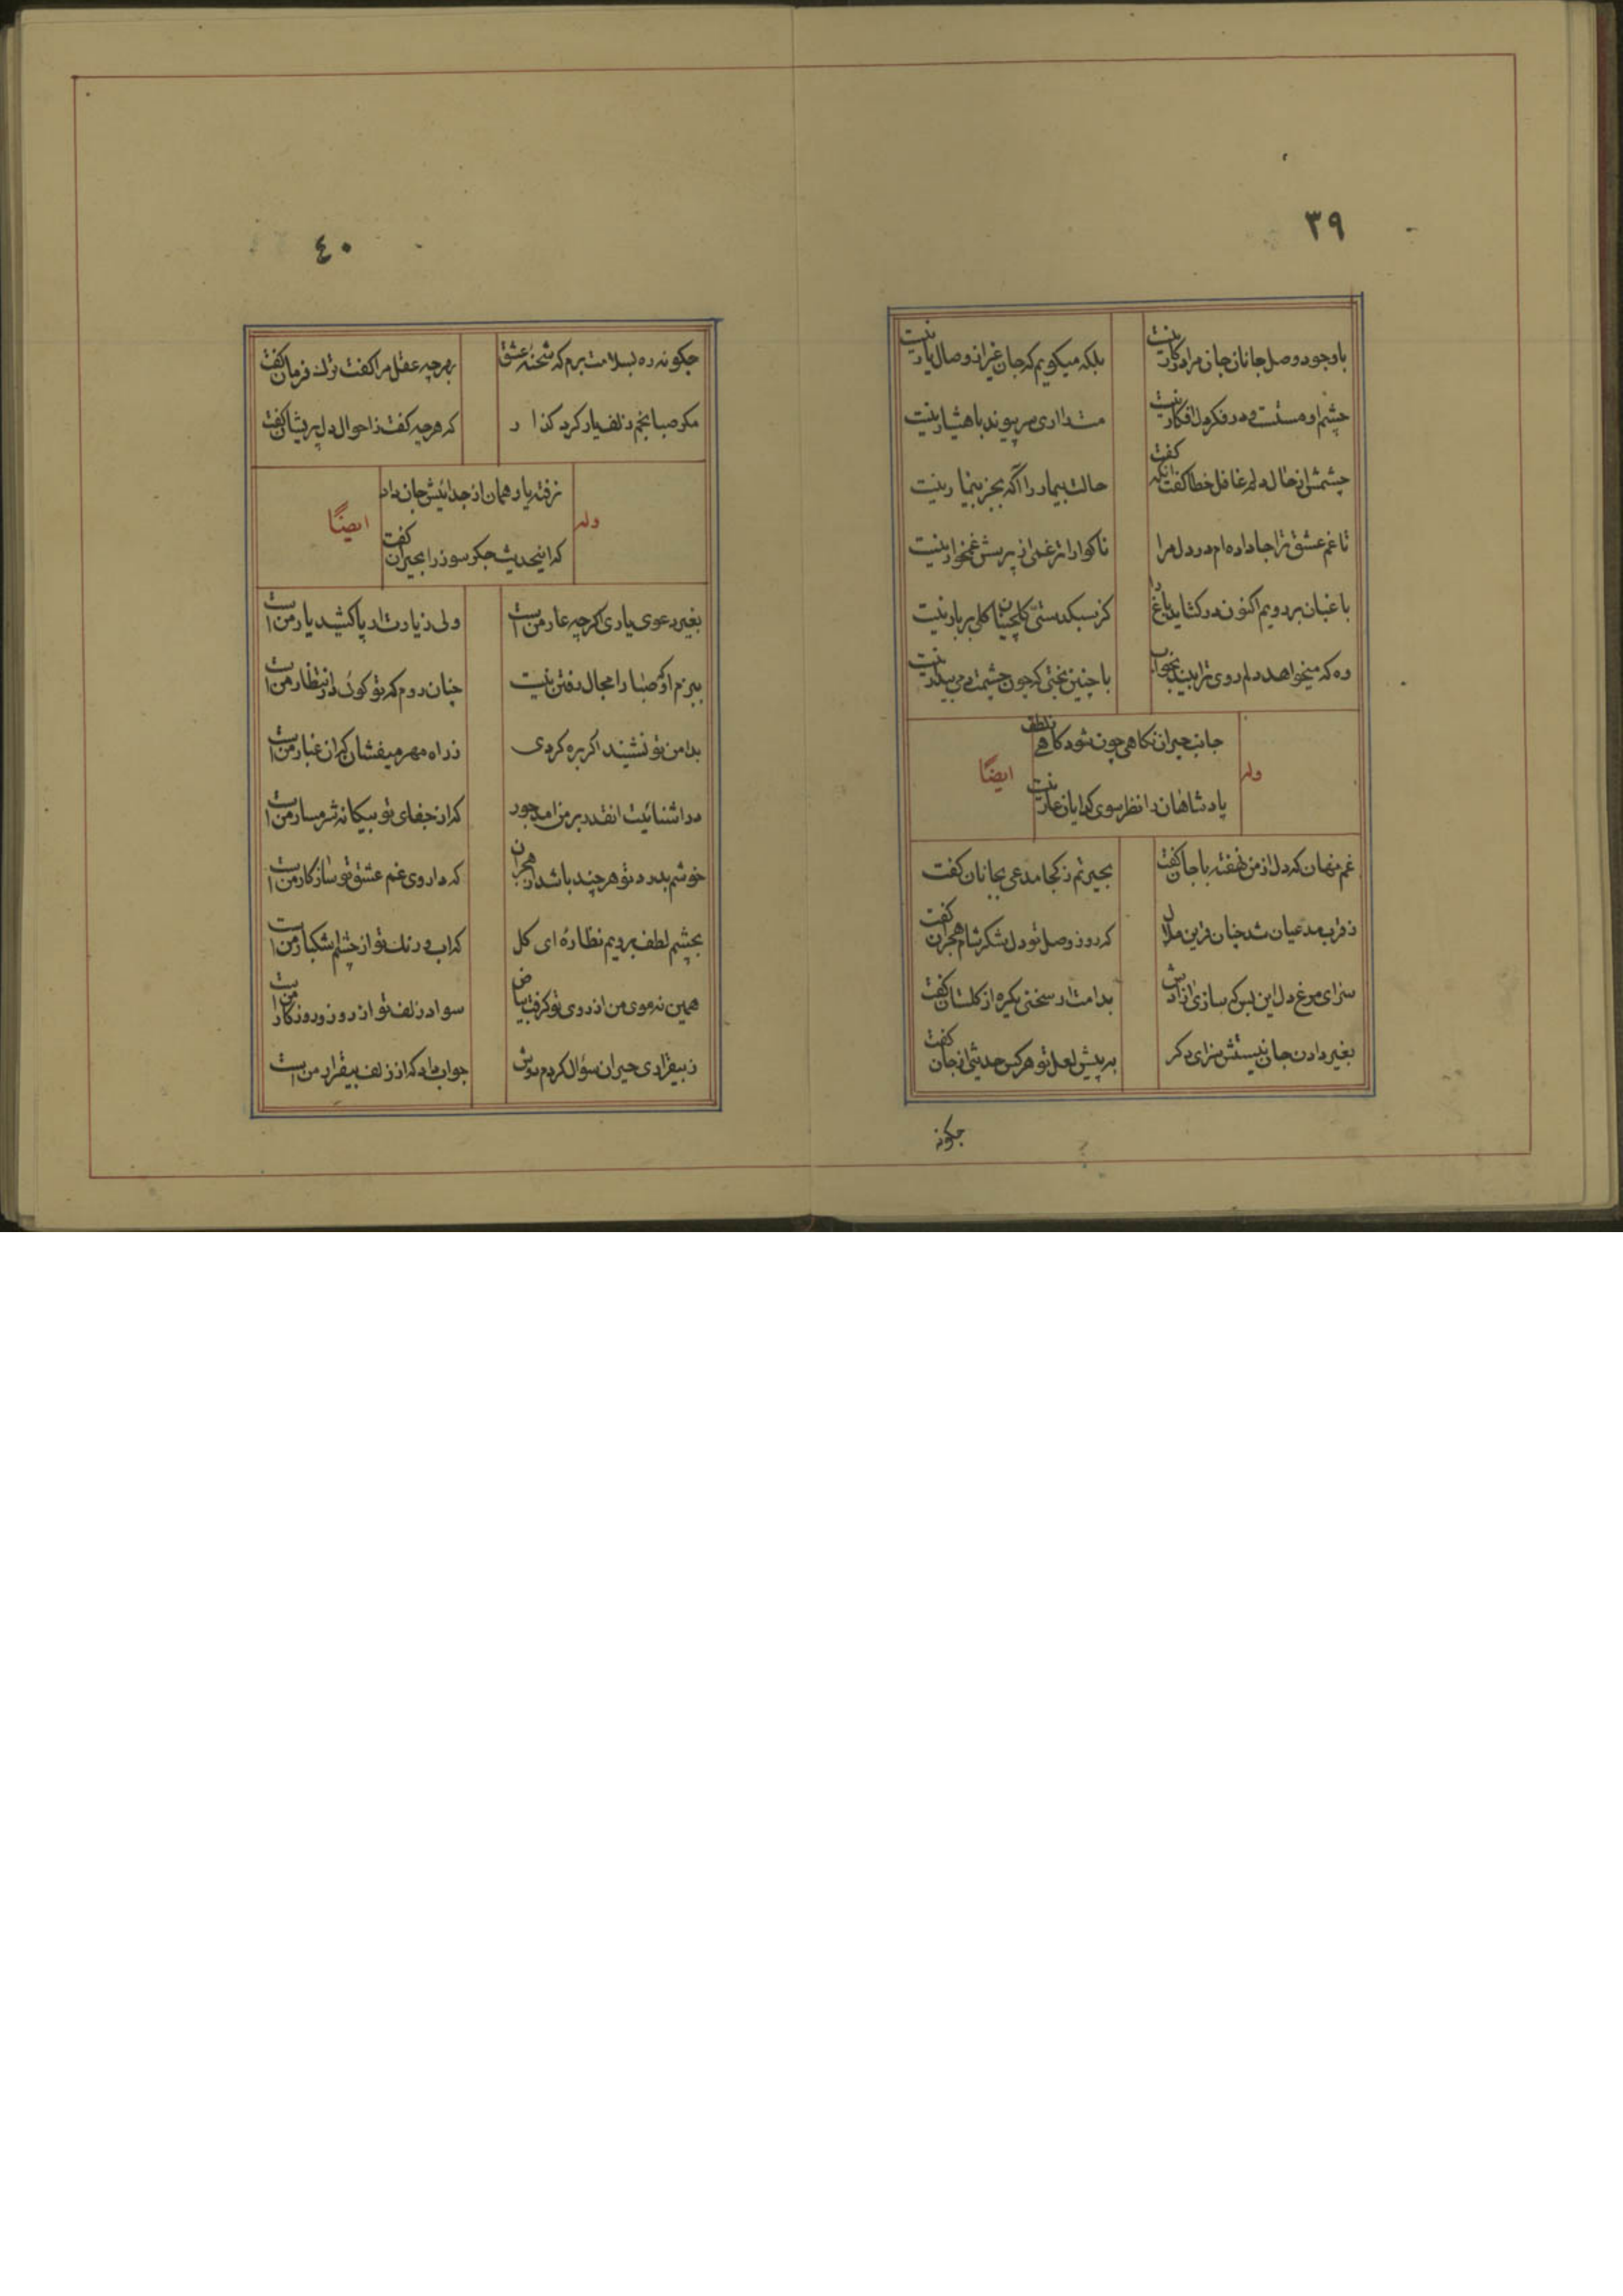 ٣٩
باوجود وصل جانان جان مرا در کار نیست
بلکه میکویم که جان غیر از وصال یار نیست
چشم او مستست و در فکر دل افکار نیست
مست را اری سر پیوند با هشیار نیست
چشمش از حال دلم غافل خطا کفت انکه کفت
حالت بیمار را آگه بجز بیمار نیست
تا غم عشق ترا جا داده ام در دل مرا
ناکوارا تر غمی از پرسش غمخوار نیست
باغبان بر رویم اکنون در کشاید باغ را
کز سبکدستی کلچینان کلی بر بار نیست
وه که میخواهد دلم روی ترا بیند بخواب
با چنین بختی که چون چشمت دمی بیدار نیست
وله
جانب حیران نکاهی چون شود کاهی ز لطف
پادشاهان را نظر سوی کدایان عار نیست
ایضًا
غم نهان که دل از من نهفته با جان کفت
بحیرتم ز کجا مدعی بجانان کفت
ز قرب مدعیان شد چنان قرین ملال
که روز وصل تو دل شکر شام هجران کفت
سزای مرغ دل این بس که سازی ازادش
بدامت ار سخنی یکره از کلستان کفت
بغیر دادن جان نیستش سزای دکر
بر پیش لعل تو هر کس حدیثی از جان کفت
چکونه
٤٠
چکونه ره بسلامت برم که شحنهٔ عشق
بهرچه عقل مرا کفت ترک فرمان کفت
مکر صبا بخم زلف یار کرد کذار
که هرچه کفت ز احوال دل پریشان کفت
وله
نرفته یار همان از جدائیش جان داد
که اینحدیث جکر سوز را بحیران کفت
ایضًا
بغیر دعوی یاری اکرچه عار من است
ولی زیارت او پا کشید یار من است
ببزم او که صبا را مجال رفتن نیست
چنان روم که تو کوئی در انتظار من است
بدامن تو نشیند اکر بره کردی
ز راه مهر میفشان که ان غبار من است
در اشنائیت انقدر بر من امد جور
که از جفای تو بیکانه شرمسار من است
خوشم بدرد تو هرچند باشد از هجران
که داروی غم عشق تو سازکار من است
بچشم لطف برویم نظارهٔ ای کل
که اب و رنک تو از چشم اشکبار من است
همین نه موی من از روی تو کرفت بیاض
سواد زلف تو از روز و روزکار من است
ز بیقراری حیران سؤال کردم دوش
جواب داد که از زلف بیقرار من است